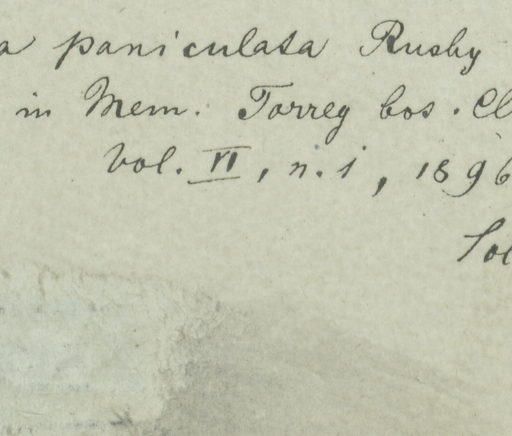 a paniculata Rusby
in Mem. Torrey bos. Cl
Vol. VI, n. 1, 1896
Sol